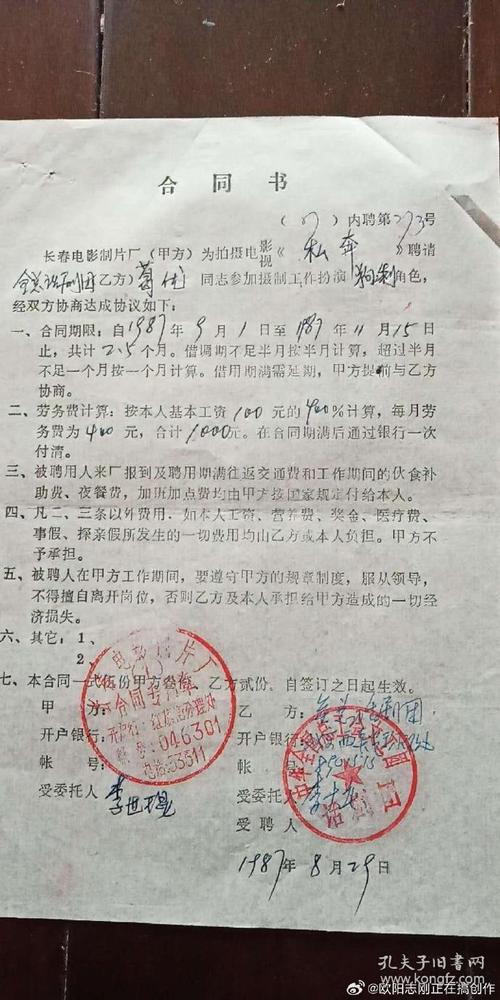 合同书
(87)内聘第273号
长春电影制片厂(甲方)为拍摄电影视《私奔》聘请
全总话剧团乙方)葛优同志参加摄制工作扮演角色,
经双方协商达成协议如下:
一、合同期限:自1987年9月1日至1987年11月15日
止,共计2.5个月。借调期不足半月按半月计算,超过半月
不足一个月按一个月计算。借用期满需延期,甲方提前与乙方
协商。
二、劳务费计算:按本人基本工资100元的400%计算,每月劳
务费为400元,合计1000元。在合同期满后通过银行一次
付清。
三、被聘用人来厂报到及聘用期满往返交通费和工作期间的伙食补
助费、夜餐费,加班加点费均由甲方按国家规定付给本人。
四、凡二、三条以外费用,如本人工资、营养费、奖金、医疗费、
事假、探亲假所发生的一切费用均山乙方或本人负担。甲方不
予承担。
五、被聘人在甲方工作期间,要遵守甲方的规章制度,服从领导,
不得擅自离开岗位,否则乙方及本人承担给甲方造成的一切经
济损失。
六、其它:1、
2、
七、本合同一式伍份甲方叁份,乙方贰份。自签订之日起生效。
甲方:
开户银行:
帐号:
受委托人
电影制片厂
合同专用章
开户行:红旗街办理处
帐号:046301
电话:53311
乙方:全总话剧团
开户银行:
帐号:
受委托人
受聘人
话剧团
1987年8月29日
孔夫子旧书网
www.kongfz.com
@欧阳志刚正在搞创作